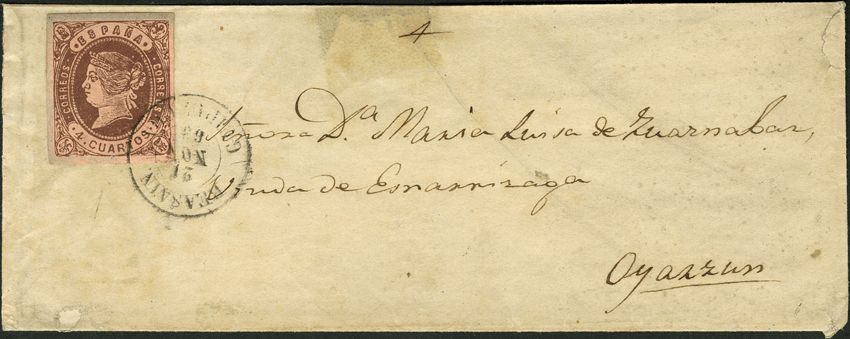 ESPAÑA
CORREOS CORREOS
4 CUARTOS
4
Señora Dª Maria Luisa de Zuarnabar,
Viuda de Esnarrizaga
21
NOV
Oyarzun